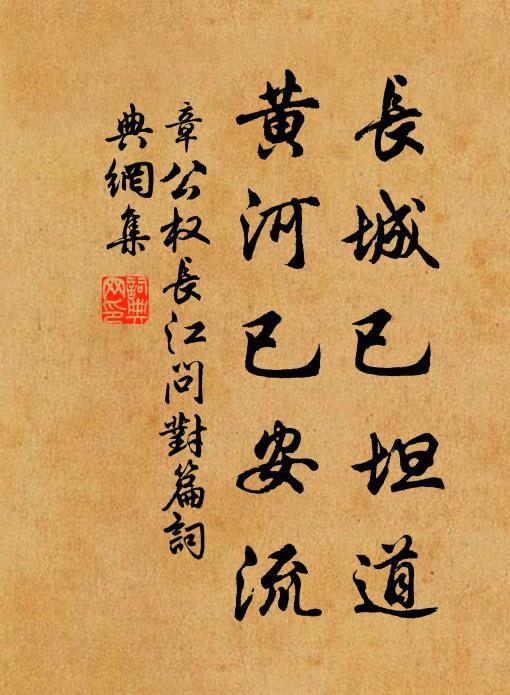 長城已坦道
黄河已安流
章公权長江問對篇詞
典網集
詞典
网印